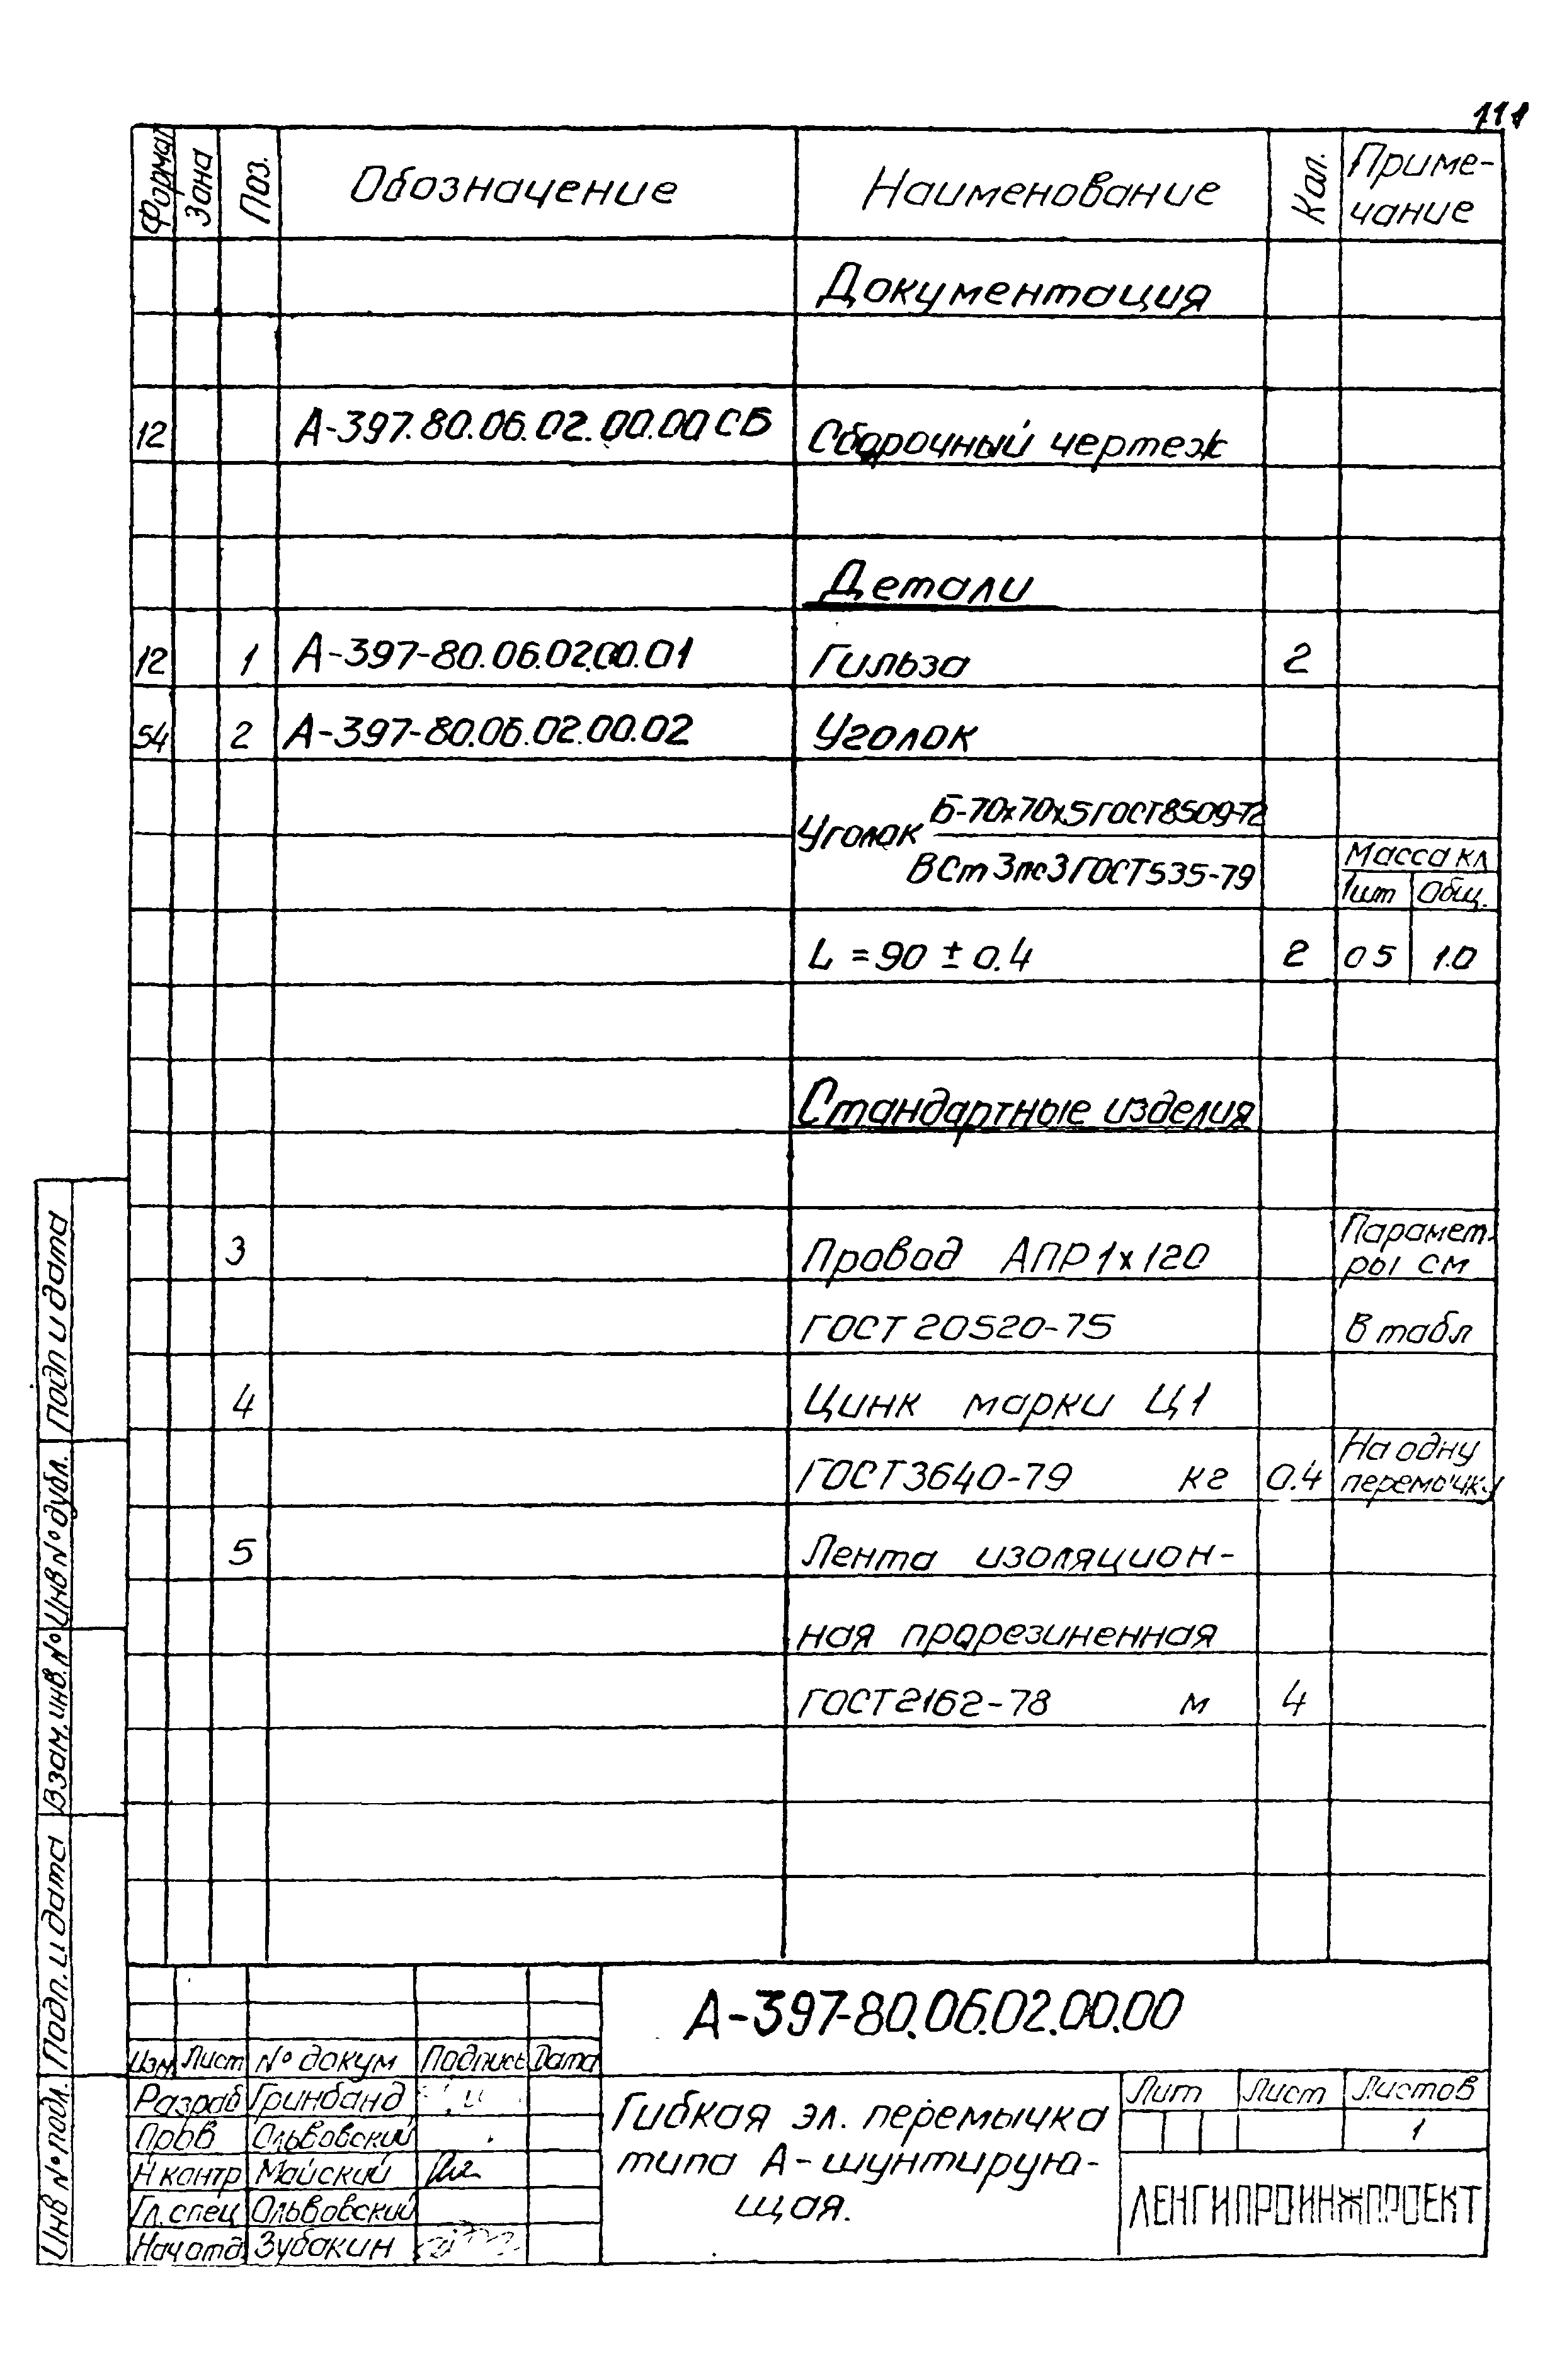 111
Формат Зона Поз. Обозначение Наименование Кол. Приме-
чание
Документация
12 А-397.80.06.02.00.00 СБ Сборочный чертеж
Детали
12 1 А-397-80.06.02.00.01 Гильза 2
54 2 А-397-80.06.02.00.02 Уголок
Уголок Б-70х70х5 ГОСТ 8509-72
ВСт3пс3 ГОСТ 535-79
Масса кл
1шт Общ.
L = 90 ± 0.4 2 0 5 1.0
Стандартные изделия
3 Провод АПР 1х120 Парамет-
ры см
ГОСТ 20520-75 в табл
4 Цинк марки Ц1
ГОСТ 3640-79 кг 0.4 На одну
перемычку
5 Лента изоляцион-
ная прорезиненная
ГОСТ 2162-78 м 4
Подп и дата
Инв № дубл.
Взам. инв. №
Подп. и дата
Инв № подл.
А-397-80.06.02.00.00
Изм Лист № докум Подпись Дата
Разраб Гринбанд
Пров Ольвовский
Н контр Майский
Гл. спец Ольвовский
Нач отд Зубакин
Гибкая эл. перемычка
типа А-шунтирую-
щая.
Лит Лист Листов
1
ЛЕНГИПРОИНЖПРОЕКТ